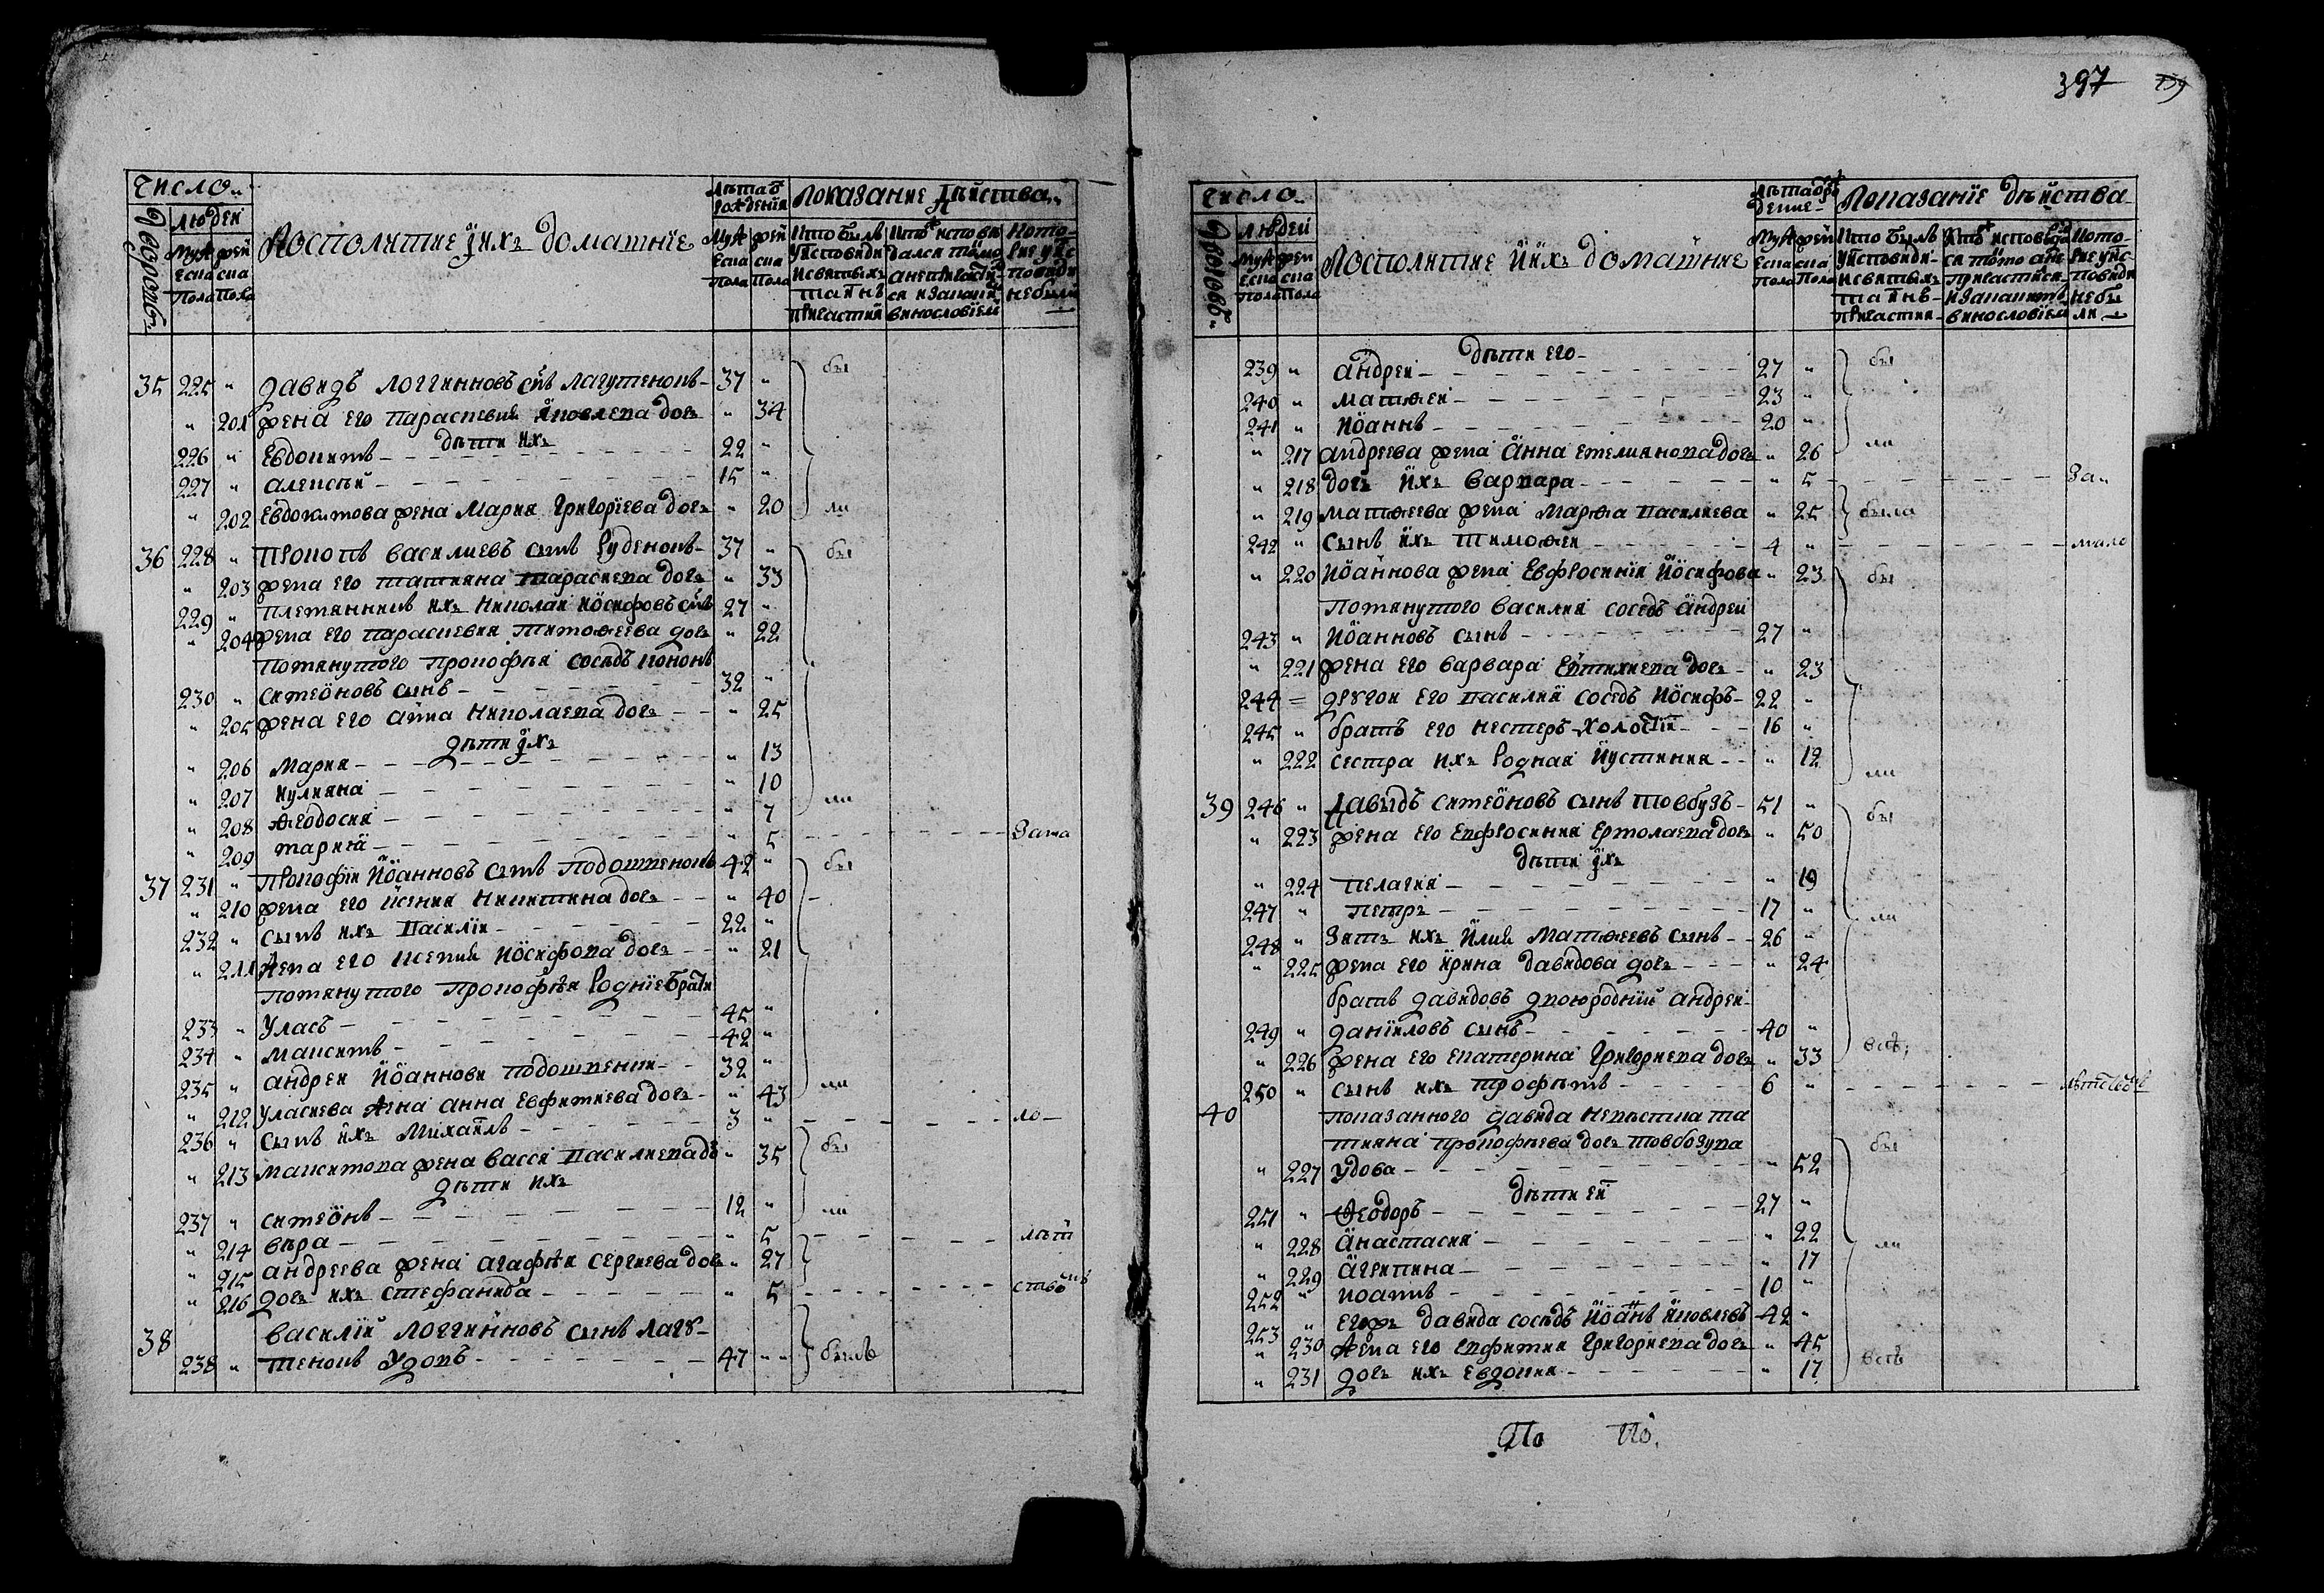 Число
Дворовъ
людей
Муж еска пола
жен ска пола
Посполитие ӥ их домашніе
лѣта ѿ рожденія
Муж еска пола
жен ска пола
Показание Дѣйства
Кто былъ у исповѣди и святыхъ таинъ причастия
Кто исповѣдался токмо а не причастися и за каким винословіем
Которие у исповѣди небыли
35 225 " Давидъ Логгиновъ снъ Лагутенокъ 37 " бы
" 201 жена его Параскевия Яковлева дочъ " 34
дѣти их
226 " Евдокимъ 22 "
227 " Алексѣй 15 "
" 202 Евдокимова жена Мария Григоріева дочъ " 20 ли
36 228 " Прокопъ Василиевъ сынъ Руденокъ 37 " бы
" 203 жена его Татияна Тарасиева дочъ " 33
229 " племянникъ их Николай Иосифовъ снъ 27 "
" 204 жена его Параскевия Тимоѳеева дочъ " 22
помянутого Прокофѣя соседъ Кононъ
230 " Симеоновъ сынъ 32 "
" 205 жена его Анна Николаева дочъ " 25
дѣти их
" 206 Мария " 13
" 207 Иулияна " 10
" 208 Ѳеодосия " 7 ли
" 209 Мария " 5 за ма
37 231 " Прокофій Иоанновъ сынъ Подошвенокъ 42 " бы
" 210 жена его Ксения Никитина дочъ " 40
232 " сынъ их Василіи 22 "
" 211 жена его Ксения Иосифова дочъ " 21
помянутого Прокофѣя родніе братя
233 " Уласъ 45 "
234 " Максимъ 42 "
235 " Андреи Иоаннови Подошвенки 32 " ли
" 212 Уласиева жена Анна Евфимиева дочъ " 43
236 " сынъ их Михаилъ 3 " ло
" 213 Максимова жена Васса Василиева дочъ " 35 бы
дѣти их
237 " Симеонъ 12 " ли
" 214 Вѣра " 5 лѣт
" 215 Андреева жена Агафѣя Сергиева дочъ " 27
" 216 дочъ их Стефанида " 5 ством
38 Василій Логгиновъ сынъ Лагу-
238 " тенокъ удовъ 47 " " былъ
397
Число
Дворовъ
людей
Муж еска пола
жен ска пола
Посполитие ӥ их домашние
лѣта ѿ рождение
Муж еска пола
жен ска пола
Показаніе дѣйства
Кто былъ у исповѣди и святыхъ таинъ причастия
Кто исповѣдася токмо а не причастися и за каким винословіем
Которие у исповѣди небыли
дѣти его
239 " Андреи 27 " бы
240 " Матѳеи 23 "
241 " Иоаннъ 20 "
" 217 Андреева жена Анна Емелиянова дочъ " 26 ли
" 218 дочъ их Варвара " 5 за
" 219 Матѳеева жена Марѳа Василиева " 25 была
242 " сынъ их Тимоѳеи 4 " мало
" 220 Иоаннова жена Евфросиния Иосифова " 23 бы
помянутого Василия соседъ Андреи
243 " Иоанновъ сынъ 27 "
" 221 жена его Варвара Евтихиева дочъ " 23
244 = другои его Василия соседъ Иосифъ 22 "
245 " братъ его Нестеръ холостіи 16 "
" 222 сестра их родная Иустиния " 12 ли
39 246 " Давыдъ Симеоновъ сынъ Товбузъ 51 " бы
" 223 жена его Евфросиния Ермолаева дочъ " 50
дѣти их
" 224 Пелагия " 19
247 " Петръ 17 " ли
248 " зять их Илия Матѳеевъ сынъ 26 "
" 225 жена его Ирина Давидова дочъ " 24
братъ Давидовъ двоюродній Андреи
249 " Даніиловъ сынъ 40 "
" 226 жена его Екатерина Григориева дочъ " 33 всѣ
250 " сынъ их Трофимъ 6 " лѣтством
40 показанного Давида невѣстка Та
тияна Прокофѣева дочъ Товбозува
" 227 удова " 52 бы
дѣти ея
251 " Ѳеодоръ 27 "
" 228 Анастасия " 22 ли
" 229 Агрипина " 17
252 " Иоаннъ 10 "
253 " егож Давида соседъ Иоаннъ Яковлевъ 42 "
" 230 жена его Евфимия Григориева дочъ " 45
" 231 дочъ их Евдокия " 17 всѣ
По По